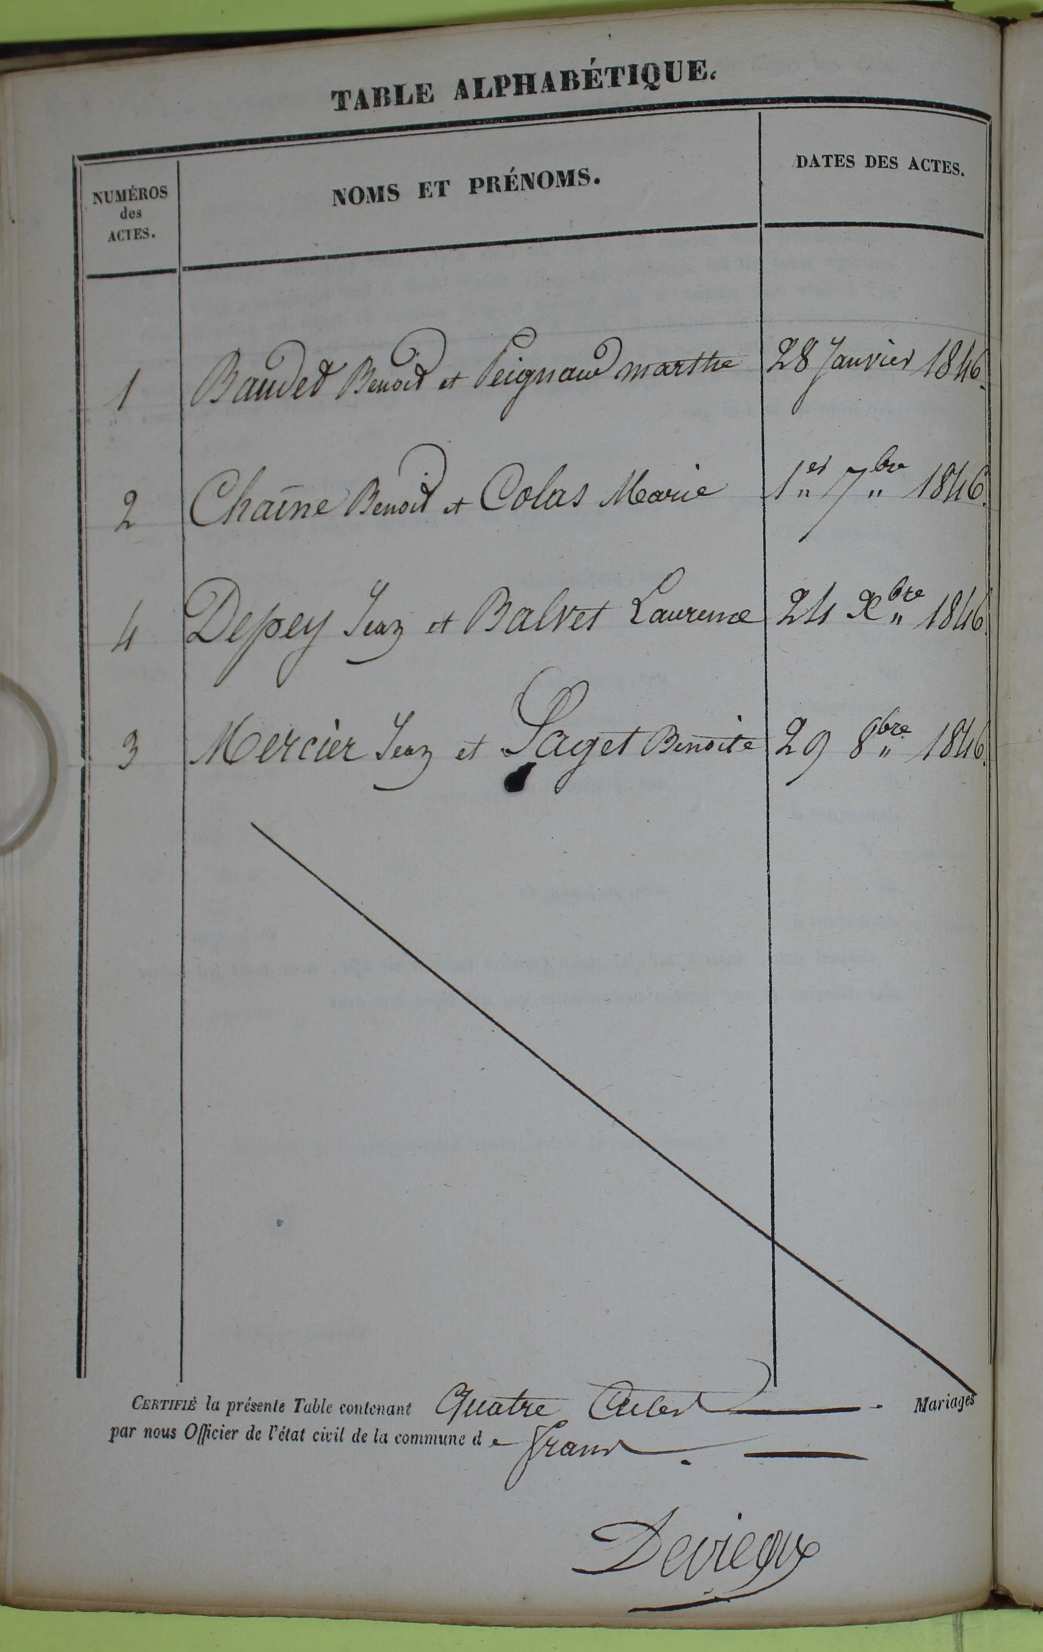 TABLE ALPHABÉTIQUE.
NUMÉROS
des
ACTES.
NOMS ET PRÉNOMS.
DATES DES ACTES.
1 Baudet Benoit et Peignaud marthe 28 Janvier 1846.
2 Chaîne Benoit et Colas Marie 1er 7bre 1846.
4 Depey Jean et Balvet Laurence 24 Xbre 1846.
3 Mercier Jean et Saget Benoite 29 8bre 1846.
CERTIFIÉ la présente Table contenant Quatre Actes Mariages
par nous Officier de l'état civil de la commune de Frans